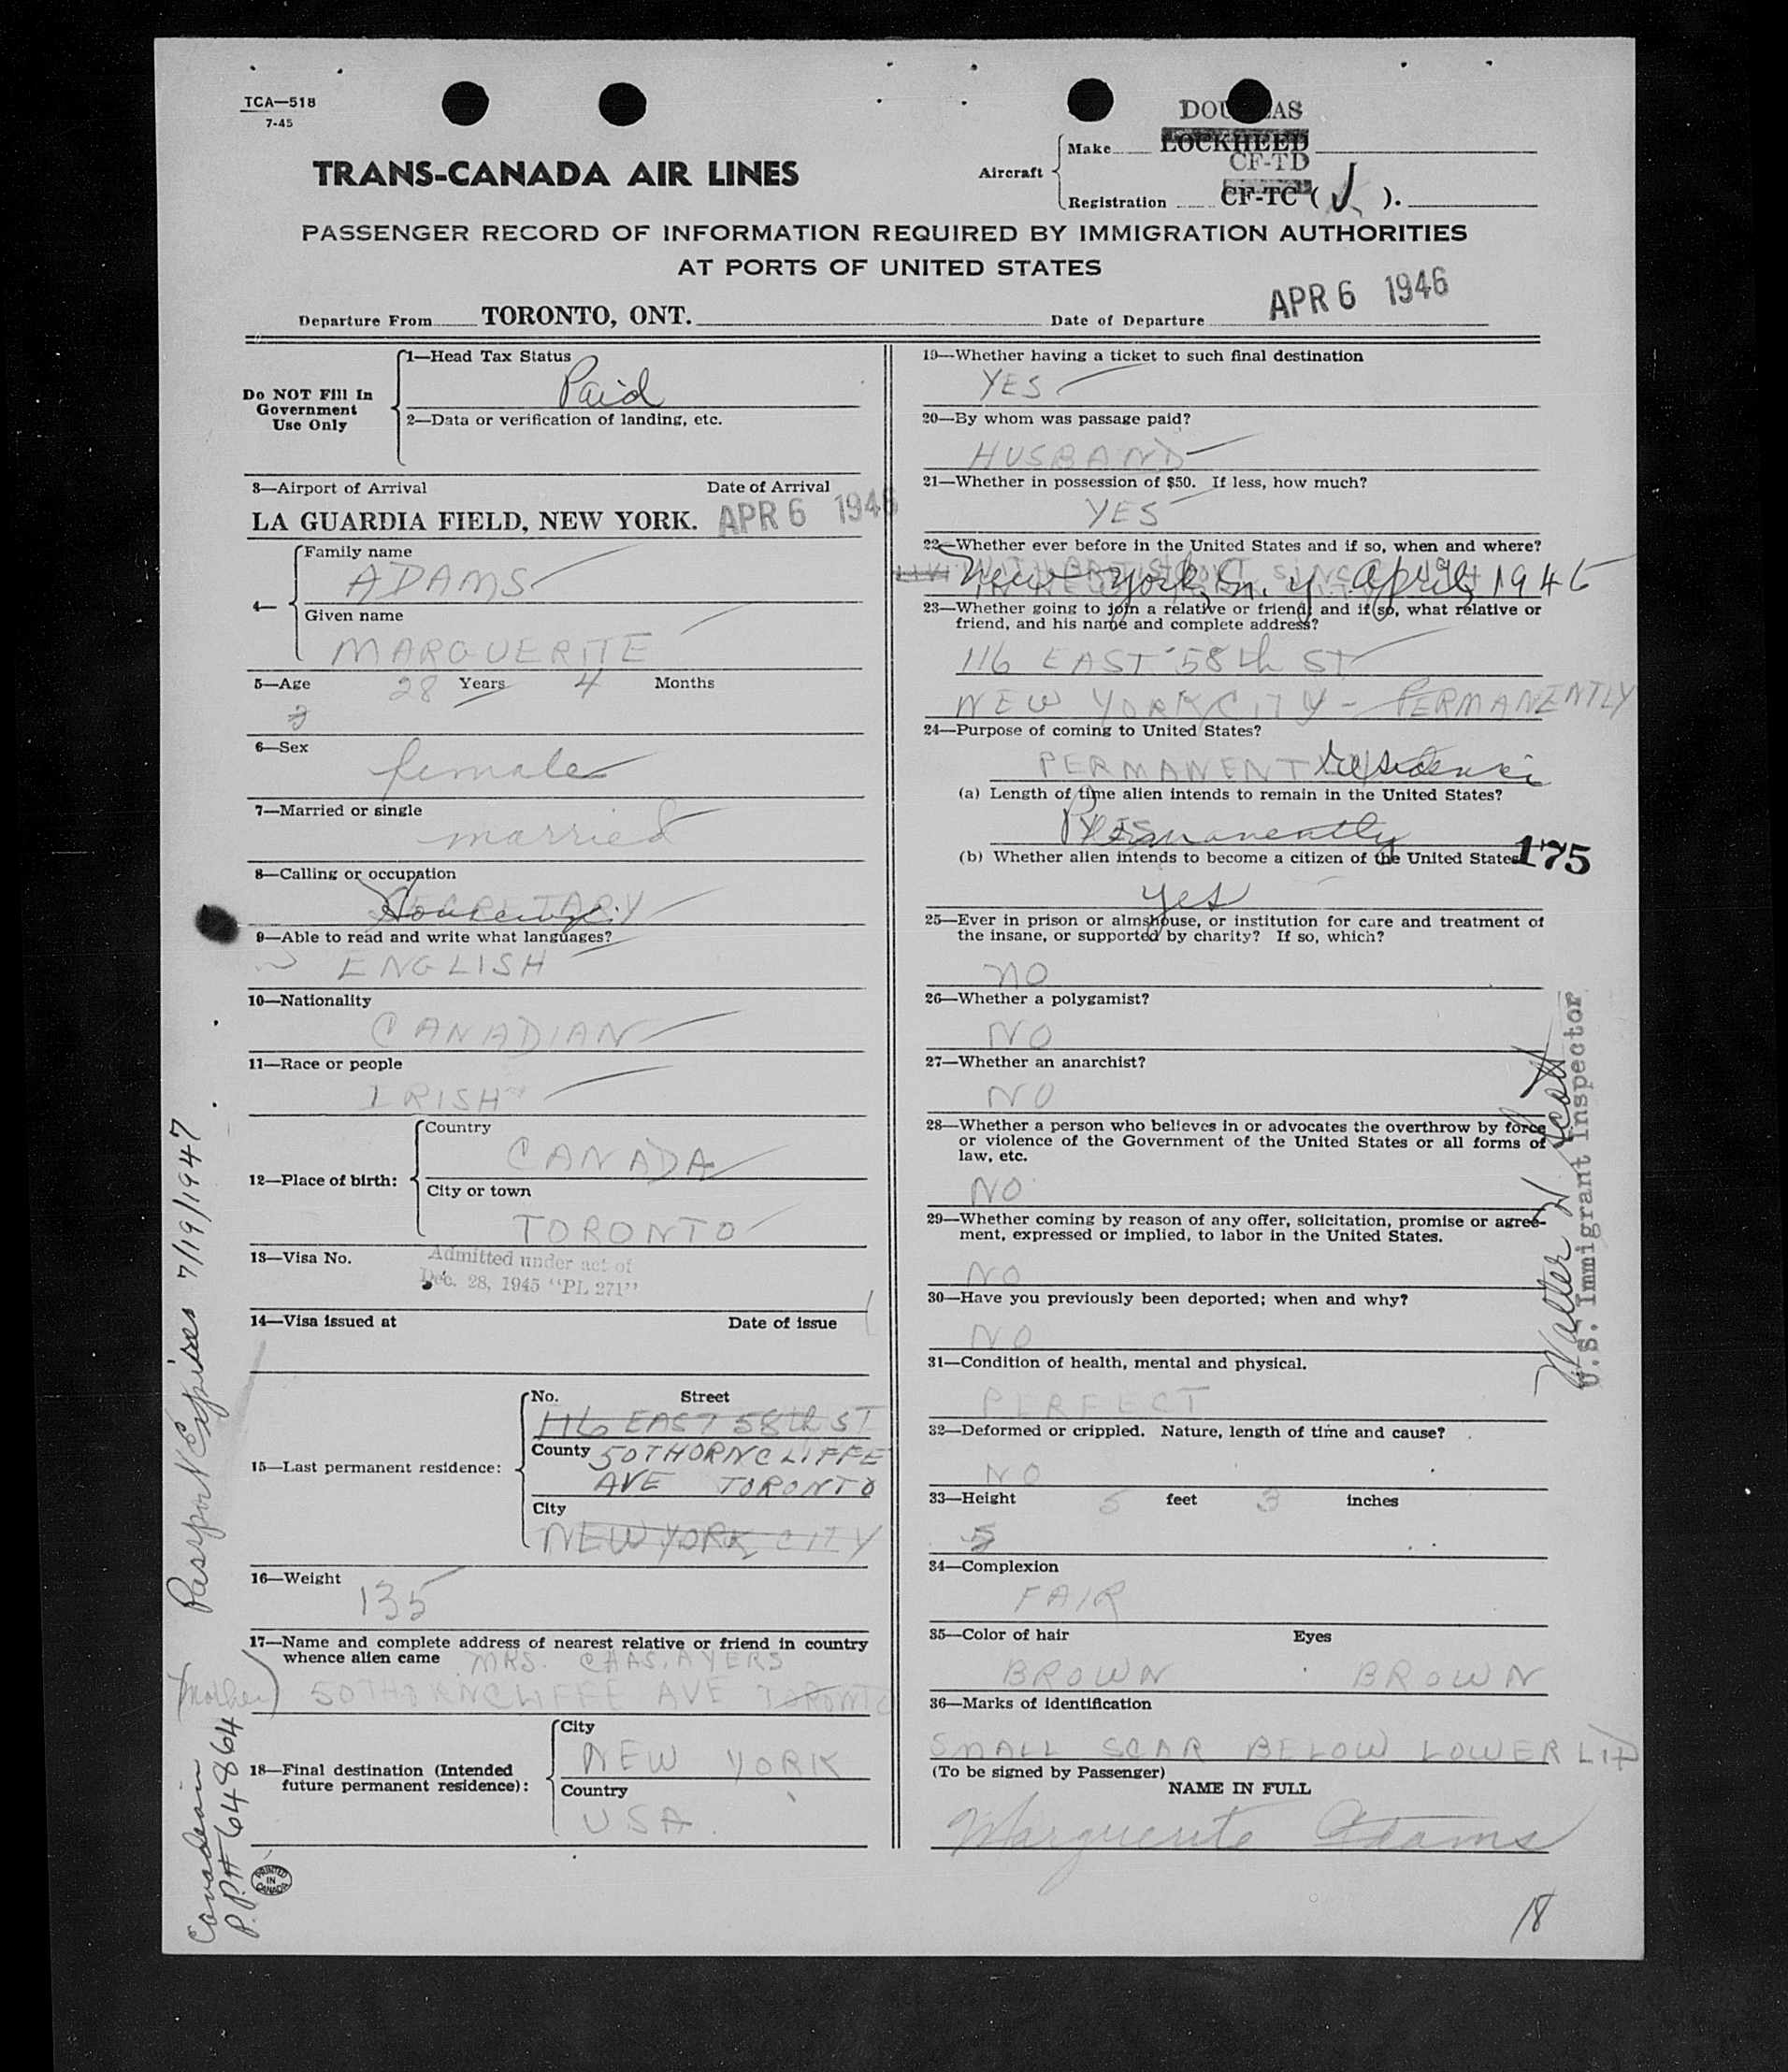 TCA—518
7-45
TRANS-CANADA AIR LINES
Aircraft
Make
LOCKHEED
CF-TD
Registration
CF-TC ( J ).
PASSENGER RECORD OF INFORMATION REQUIRED BY IMMIGRATION AUTHORITIES
AT PORTS OF UNITED STATES
Departure From TORONTO, ONT.
Date of Departure APR 6 1946
Do NOT Fill In
Government
Use Only
1—Head Tax Status
Paid
2—Data or verification of landing, etc.
3—Airport of Arrival Date of Arrival
LA GUARDIA FIELD, NEW YORK. APR 6 1946
4—
Family name
ADAMS
Given name
MARGUERITE
5—Age 28 Years 4 Months
6—Sex
female
7—Married or single
married
8—Calling or occupation
Housewife
9—Able to read and write what languages?
ENGLISH
10—Nationality
CANADIAN
11—Race or people
IRISH
12—Place of birth:
Country
CANADA
City or town
TORONTO
13—Visa No.
Admitted under act of
Dec. 28, 1945 "PL 271"
14—Visa issued at Date of issue
15—Last permanent residence:
No. Street
116 EAST 58th ST
County 50 THORNCLIFFE
AVE TORONTO
City
NEW YORK CITY
16—Weight
135
17—Name and complete address of nearest relative or friend in country
whence alien came MRS. CHAS. AYERS
(Mother) 50 THORNCLIFFE AVE TORONTO
18—Final destination (Intended
future permanent residence):
City
NEW YORK
Country
USA.
PRINTED
IN
CANADA
Passport Expires 7/19/1947
Canadian
P.P.# 64864
19—Whether having a ticket to such final destination
YES
20—By whom was passage paid?
HUSBAND
21—Whether in possession of $50. If less, how much?
YES
22—Whether ever before in the United States and if so, when and where?
New York, N.Y. April 1946
23—Whether going to join a relative or friend; and if so, what relative or
friend, and his name and complete address?
116 EAST 58th ST
NEW YORK CITY - PERMANENTLY
24—Purpose of coming to United States?
PERMANENT residence
(a) Length of time alien intends to remain in the United States?
Permanently
(b) Whether alien intends to become a citizen of the United States
175
yes
25—Ever in prison or almshouse, or institution for care and treatment of
the insane, or supported by charity? If so, which?
NO
26—Whether a polygamist?
NO
27—Whether an anarchist?
NO
28—Whether a person who believes in or advocates the overthrow by force
or violence of the Government of the United States or all forms of
law, etc.
NO
29—Whether coming by reason of any offer, solicitation, promise or agree-
ment, expressed or implied, to labor in the United States.
NO
30—Have you previously been deported; when and why?
NO
31—Condition of health, mental and physical.
PERFECT
32—Deformed or crippled. Nature, length of time and cause?
NO
33—Height 5 feet 3 inches
34—Complexion
FAIR
35—Color of hair Eyes
BROWN BROWN
36—Marks of identification
SMALL SCAR BELOW LOWER LIP
(To be signed by Passenger)
NAME IN FULL
Marguerite Adams
Walter W Scott
U.S. Immigrant Inspector
18